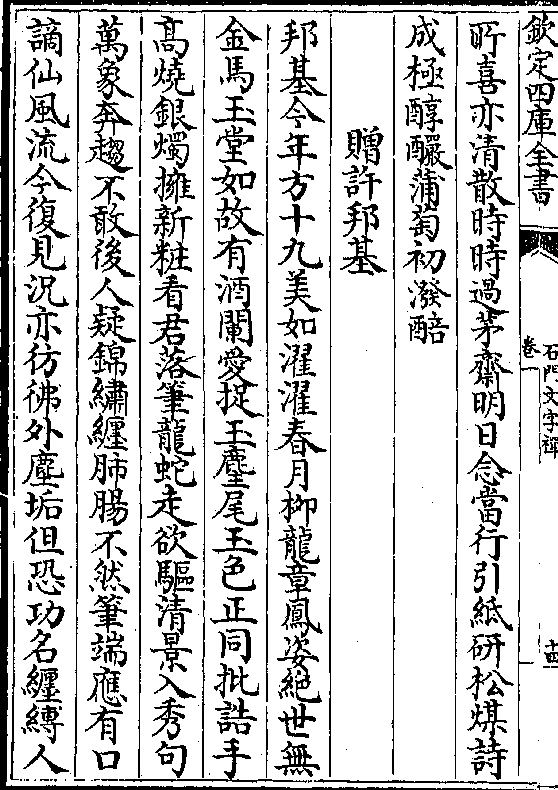 欽定四庫全書
卷一
石門文字禪
十四
所喜亦清散時時過茅齋明日念當行引紙研松煤詩
成極醇釅蒲萄初潑醅
贈許邦基
邦基今年方十九美如濯濯春月柳龍章鳳姿絶世無
金馬玉堂如故有酒闌愛捉玉麈尾玉色正同批誥手
高燒銀燭擁新粧看君落筆龍蛇走欲驅清景入秀句
萬象奔趨不敢後人疑錦繡纏肺腸不然筆端應有口
謫仙風流今復見況亦彷彿外塵垢但恐功名纏縛人